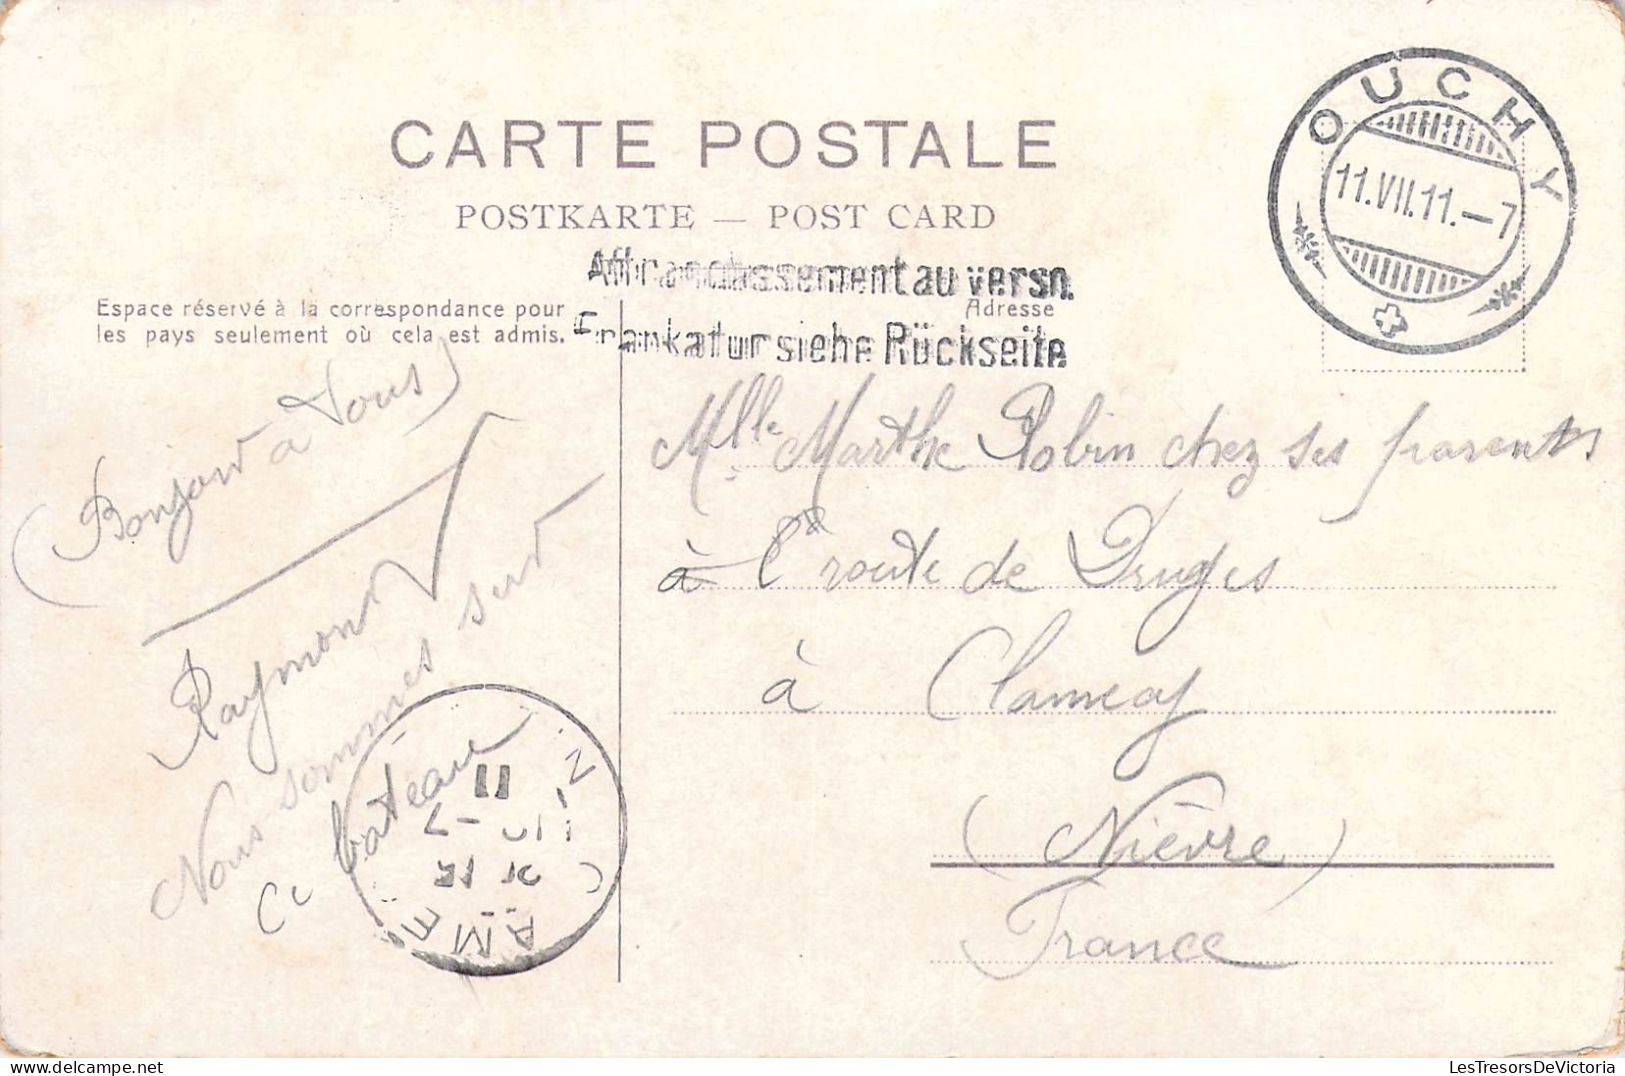 CARTE POSTALE
POSTKARTE — POST CARD
Affranchissement au verso.
Frankatur siehe Rückseite
Espace réservé à la correspondance pour
les pays seulement où cela est admis.
Adresse
OUCHY
11.VII.11.—7
(Bonjour à tous)
Raymond
Nous sommes sur
ce bateau
Mlle Marthe Robin chez ses parents
à route de Druyes
à Clamecy
(Nièvre)
France
11
LesTresorsDeVictoria
www.delcampe.net